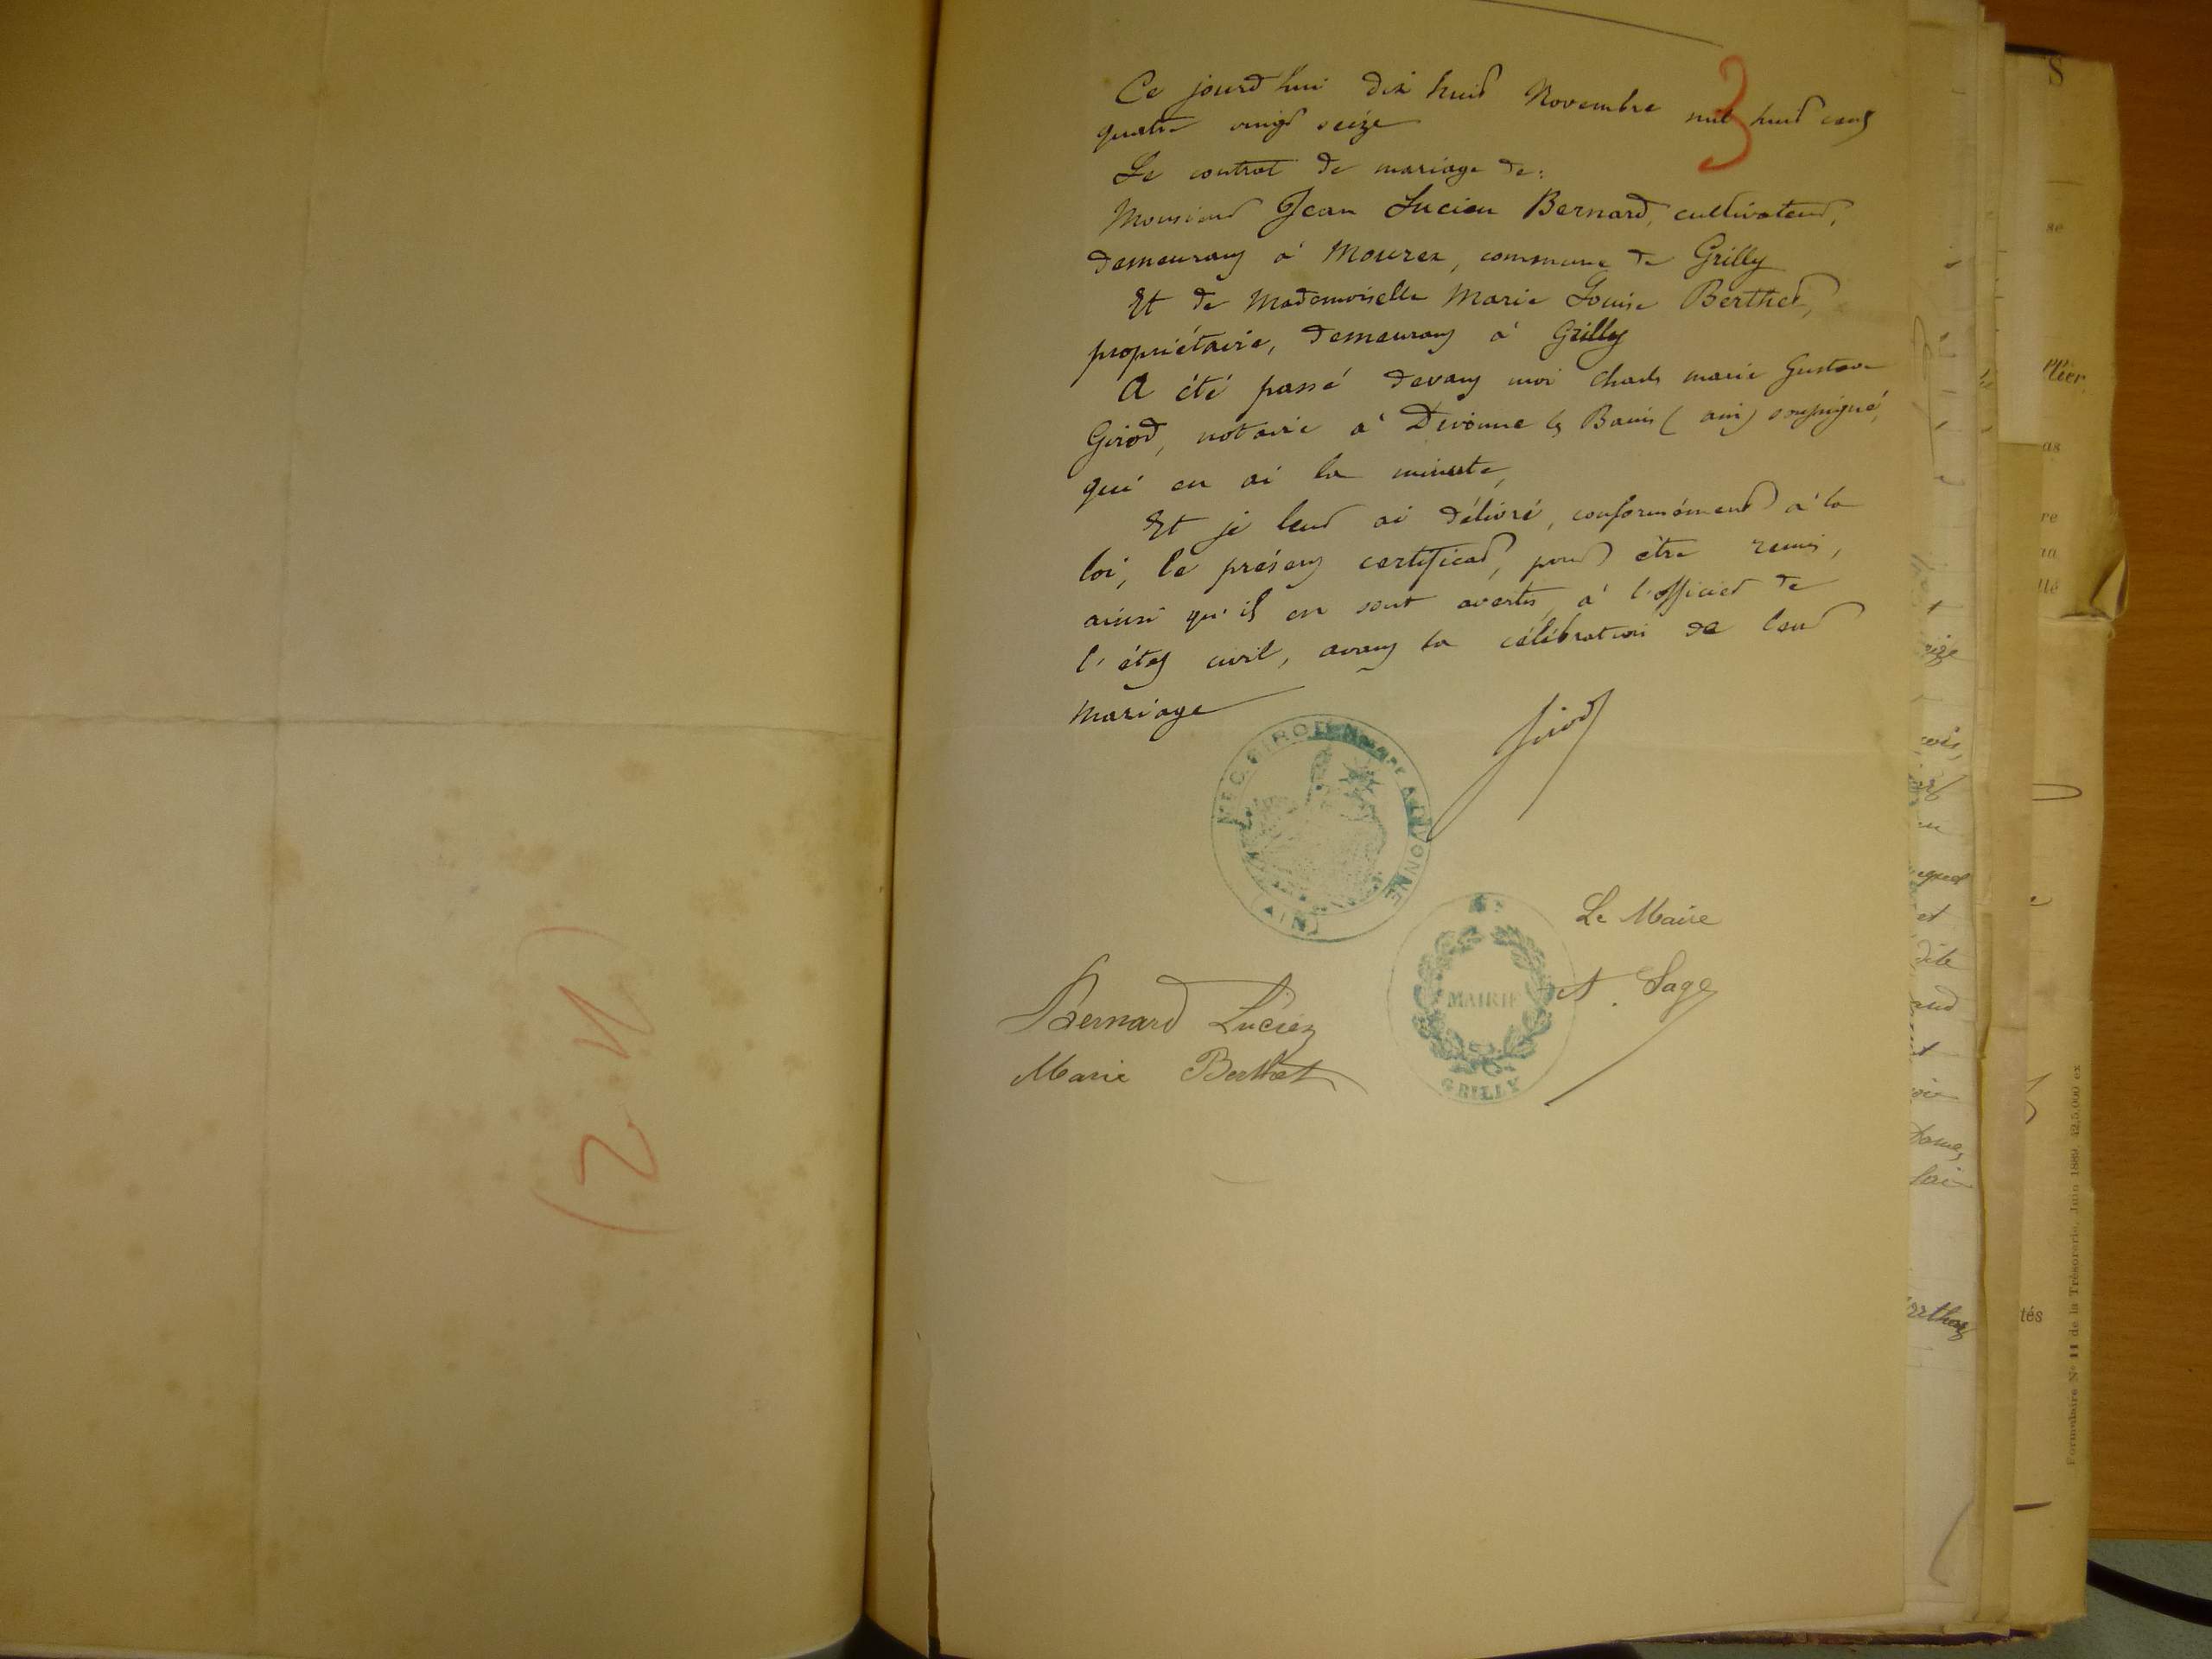 (N° 2)
3
Ce jourd'hui dix huit Novembre mil huit cent
quatre vingt seize
Le contrat de mariage de:
Monsieur Jean Lucien Bernard, cultivateur,
demeurant à Mourex, commune de Grilly
Et de Mademoiselle Marie Louise Berthet,
propriétaire, demeurant à Grilly
A été passé devant moi Charles Marie Gustave
Girod, notaire à Divonne les Bains (Ain) soussigné,
qui en ai la minute,
Et je leur ai délivré, conformément à la
loi, le présent certificat, pour être remis,
ainsi qu'ils en sont avertis, à l'officier de
l'état civil, avant la célébration de leur
mariage
Girod
GIROD Notaire A DIVONNE
(AIN)
Le Maire
A. Sage
MAIRIE
GRILLY
Bernard Lucien
Marie Berthet
Formulaire N° 11 de la Trésorerie. Juin 1889